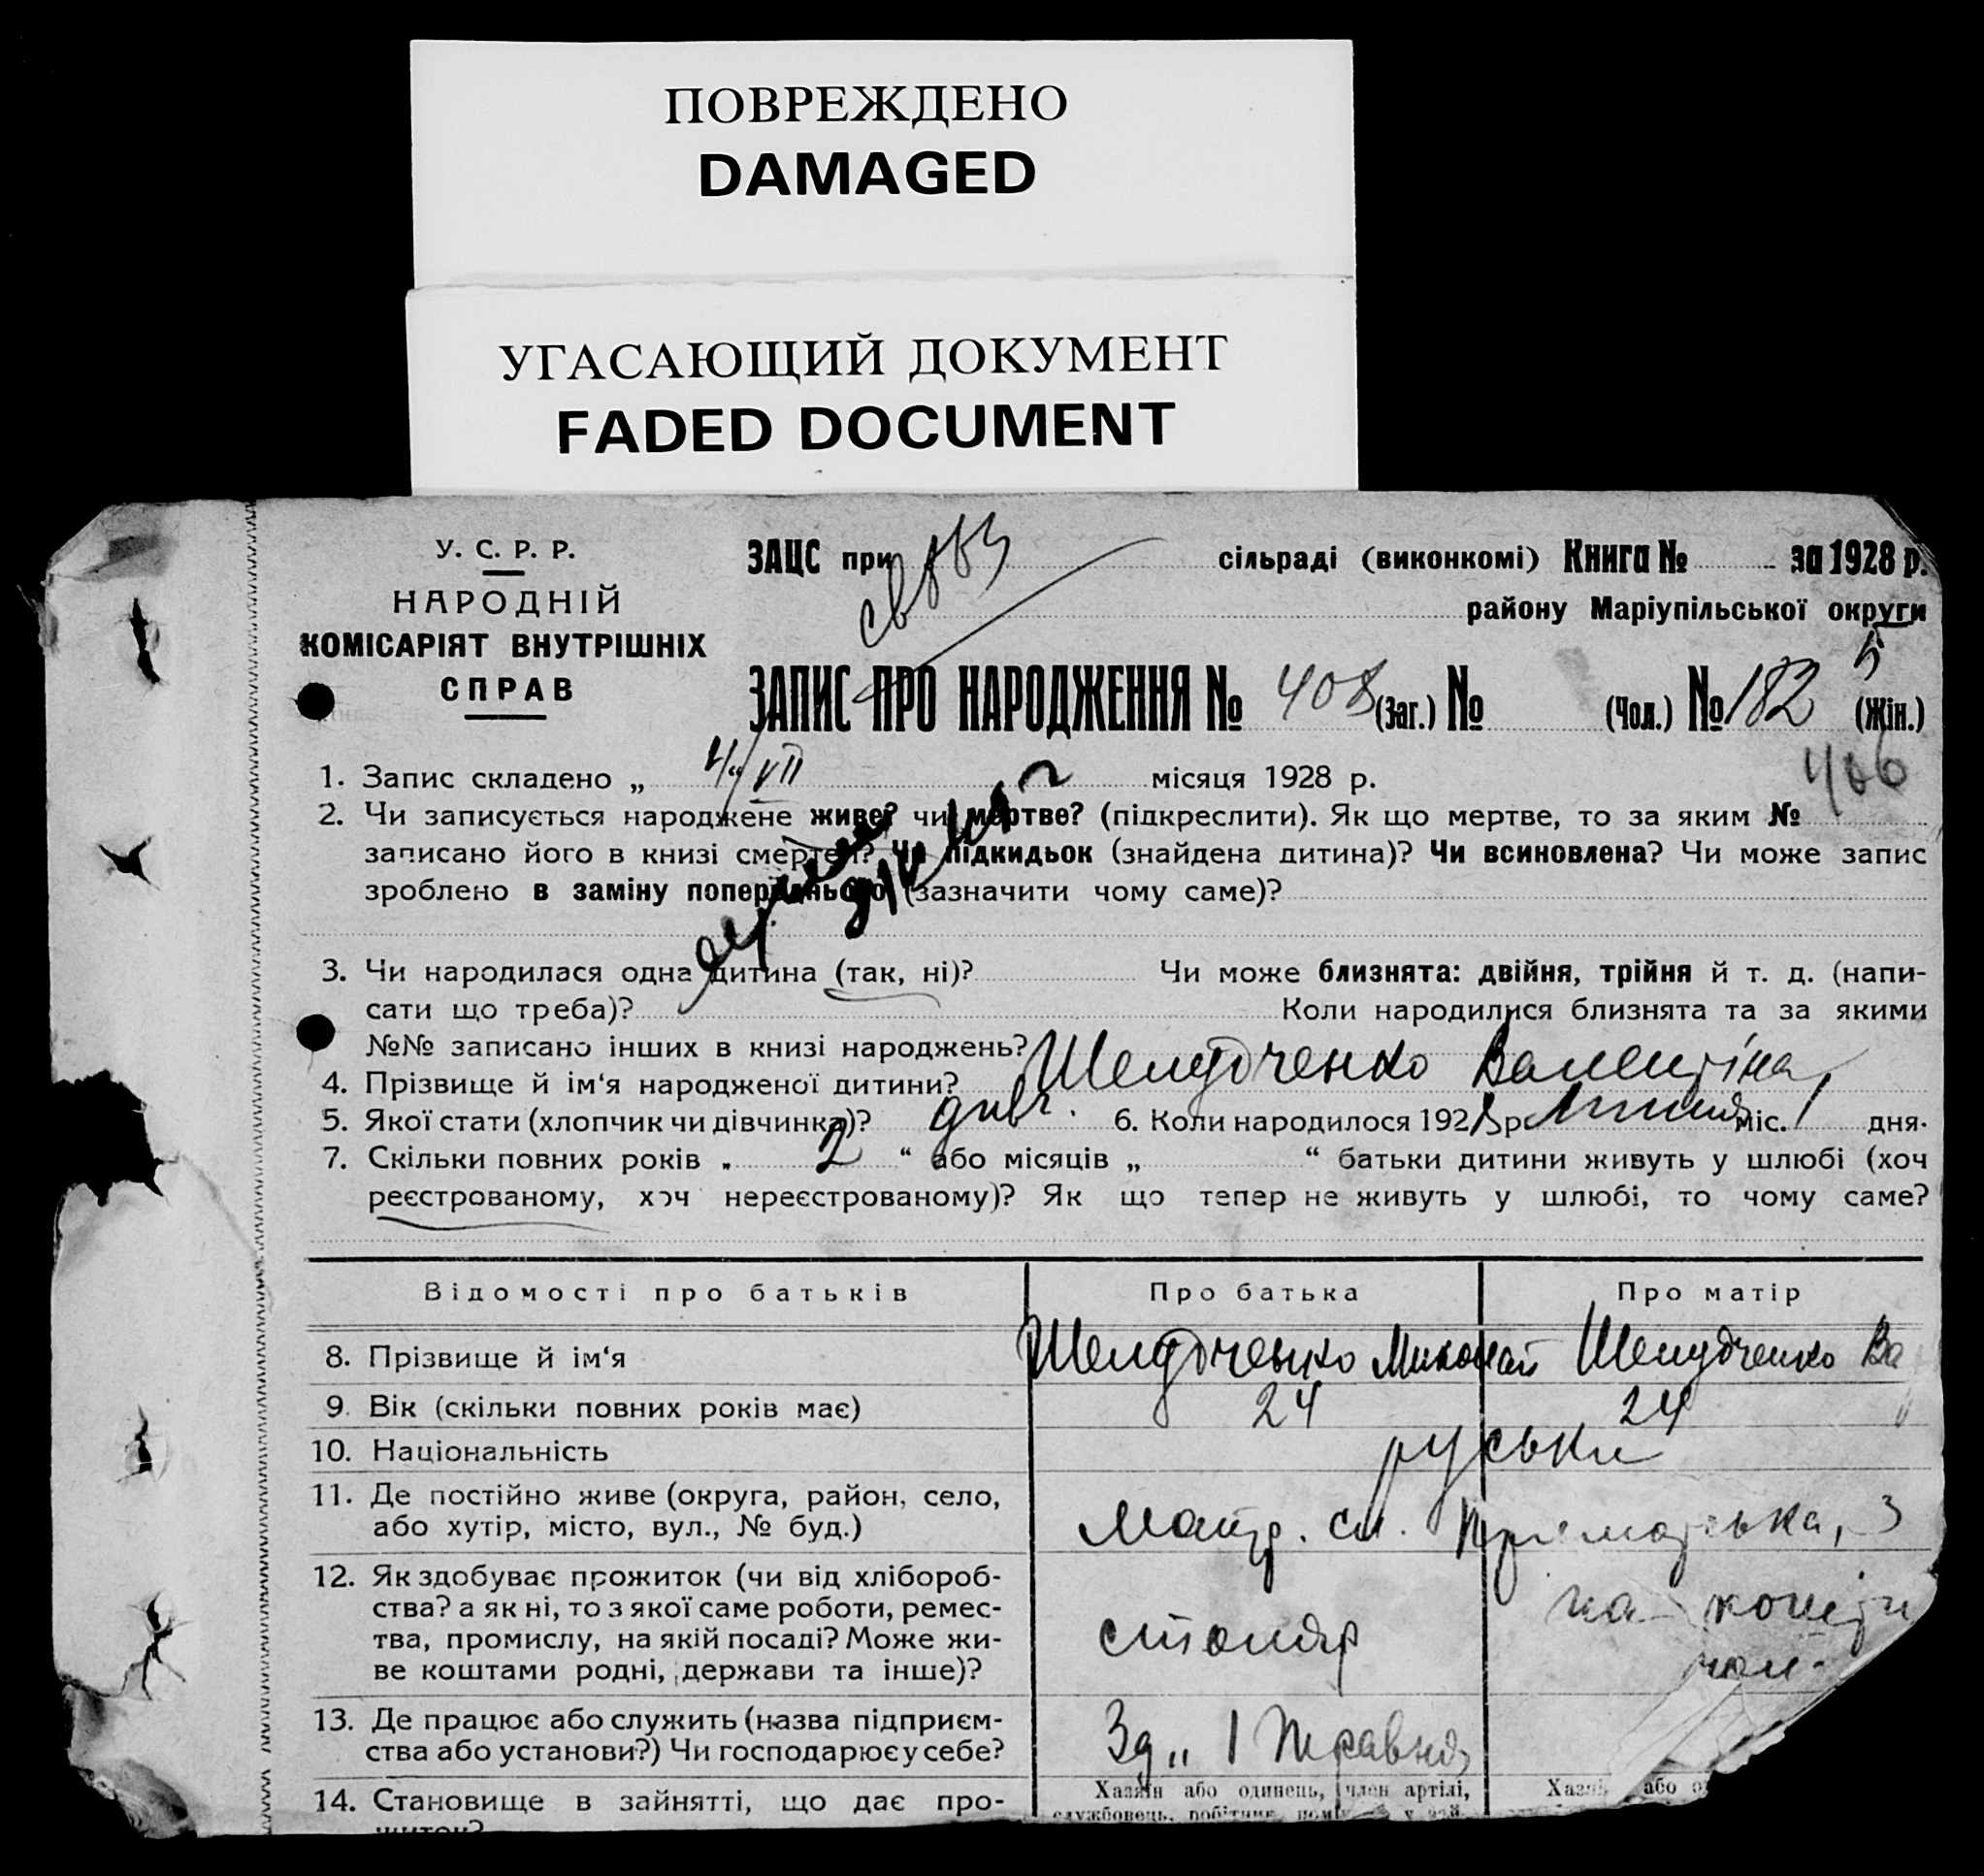 ПОВРЕЖДЕНО
DAMAGED
УГАСАЮЩИЙ ДОКУМЕНТ
FADED DOCUMENT
У. С. Р. Р.
НАРОДНІЙ
КОМІСАРІЯТ ВНУТРІШНІХ
СПРАВ
ЗАЦС при сільраді (виконкомі) Книга № за 1928 р.
району Маріупільської округи
ЗАПИС ПРО НАРОДЖЕННЯ № 408 (Заг.) № (Чол.) № 182 (Жін.)
5
406
1. Запис складено „ 4/VII місяця 1928 р.
2. Чи записується народжене живе? чи мертве? (підкреслити). Як що мертве, то за яким №
записано його в книзі смертей? Чи підкидьок (знайдена дитина)? Чи всиновлена? Чи може запис
зроблено в заміну попереднього (зазначити чому саме)?
3. Чи народилася одна дитина (так, ні)? Чи може близнята: двійня, трійня й т. д. (напи-
сати що треба)? Коли народилися близнята та за якими
№№ записано інших в книзі народжень?
4. Прізвище й ім‘я народженої дитини? Шелудченко Валентіна
5. Якої стати (хлопчик чи дівчинка)? дивч. 6. Коли народилося 1928 р. Липня міс. 1 дня.
7. Скільки повних років „ 2 “ або місяців „ “ батьки дитини живуть у шлюбі (хоч
реєстрованому, хоч нереєстрованому)? Як що тепер не живуть у шлюбі, то чому саме?
Відомості про батьків Про батька Про матір
8. Прізвище й ім‘я Шелудченко Миколай Шелудченко Ва
9. Вік (скільки повних років має) 24 24
10. Національність руськи
11. Де постійно живе (округа, район, село,
або хутір, місто, вул., № буд.) Маіур. ст. Приморська, 3
12. Як здобуває прожиток (чи від хлібороб-
ства? а як ні, то з якої саме роботи, ремес-
тва, промислу, на якій посаді? Може жи-
ве коштами родні, держави та інше)?
столяр на кошти чол.
13. Де працює або служить (назва підприєм-
ства або установи?) Чи господарює у себе?
Зд „ 1 Травня
14. Становище в зайнятті, що дає про-
Хазяїн або одинець, член артілі,
службовець, робітник,